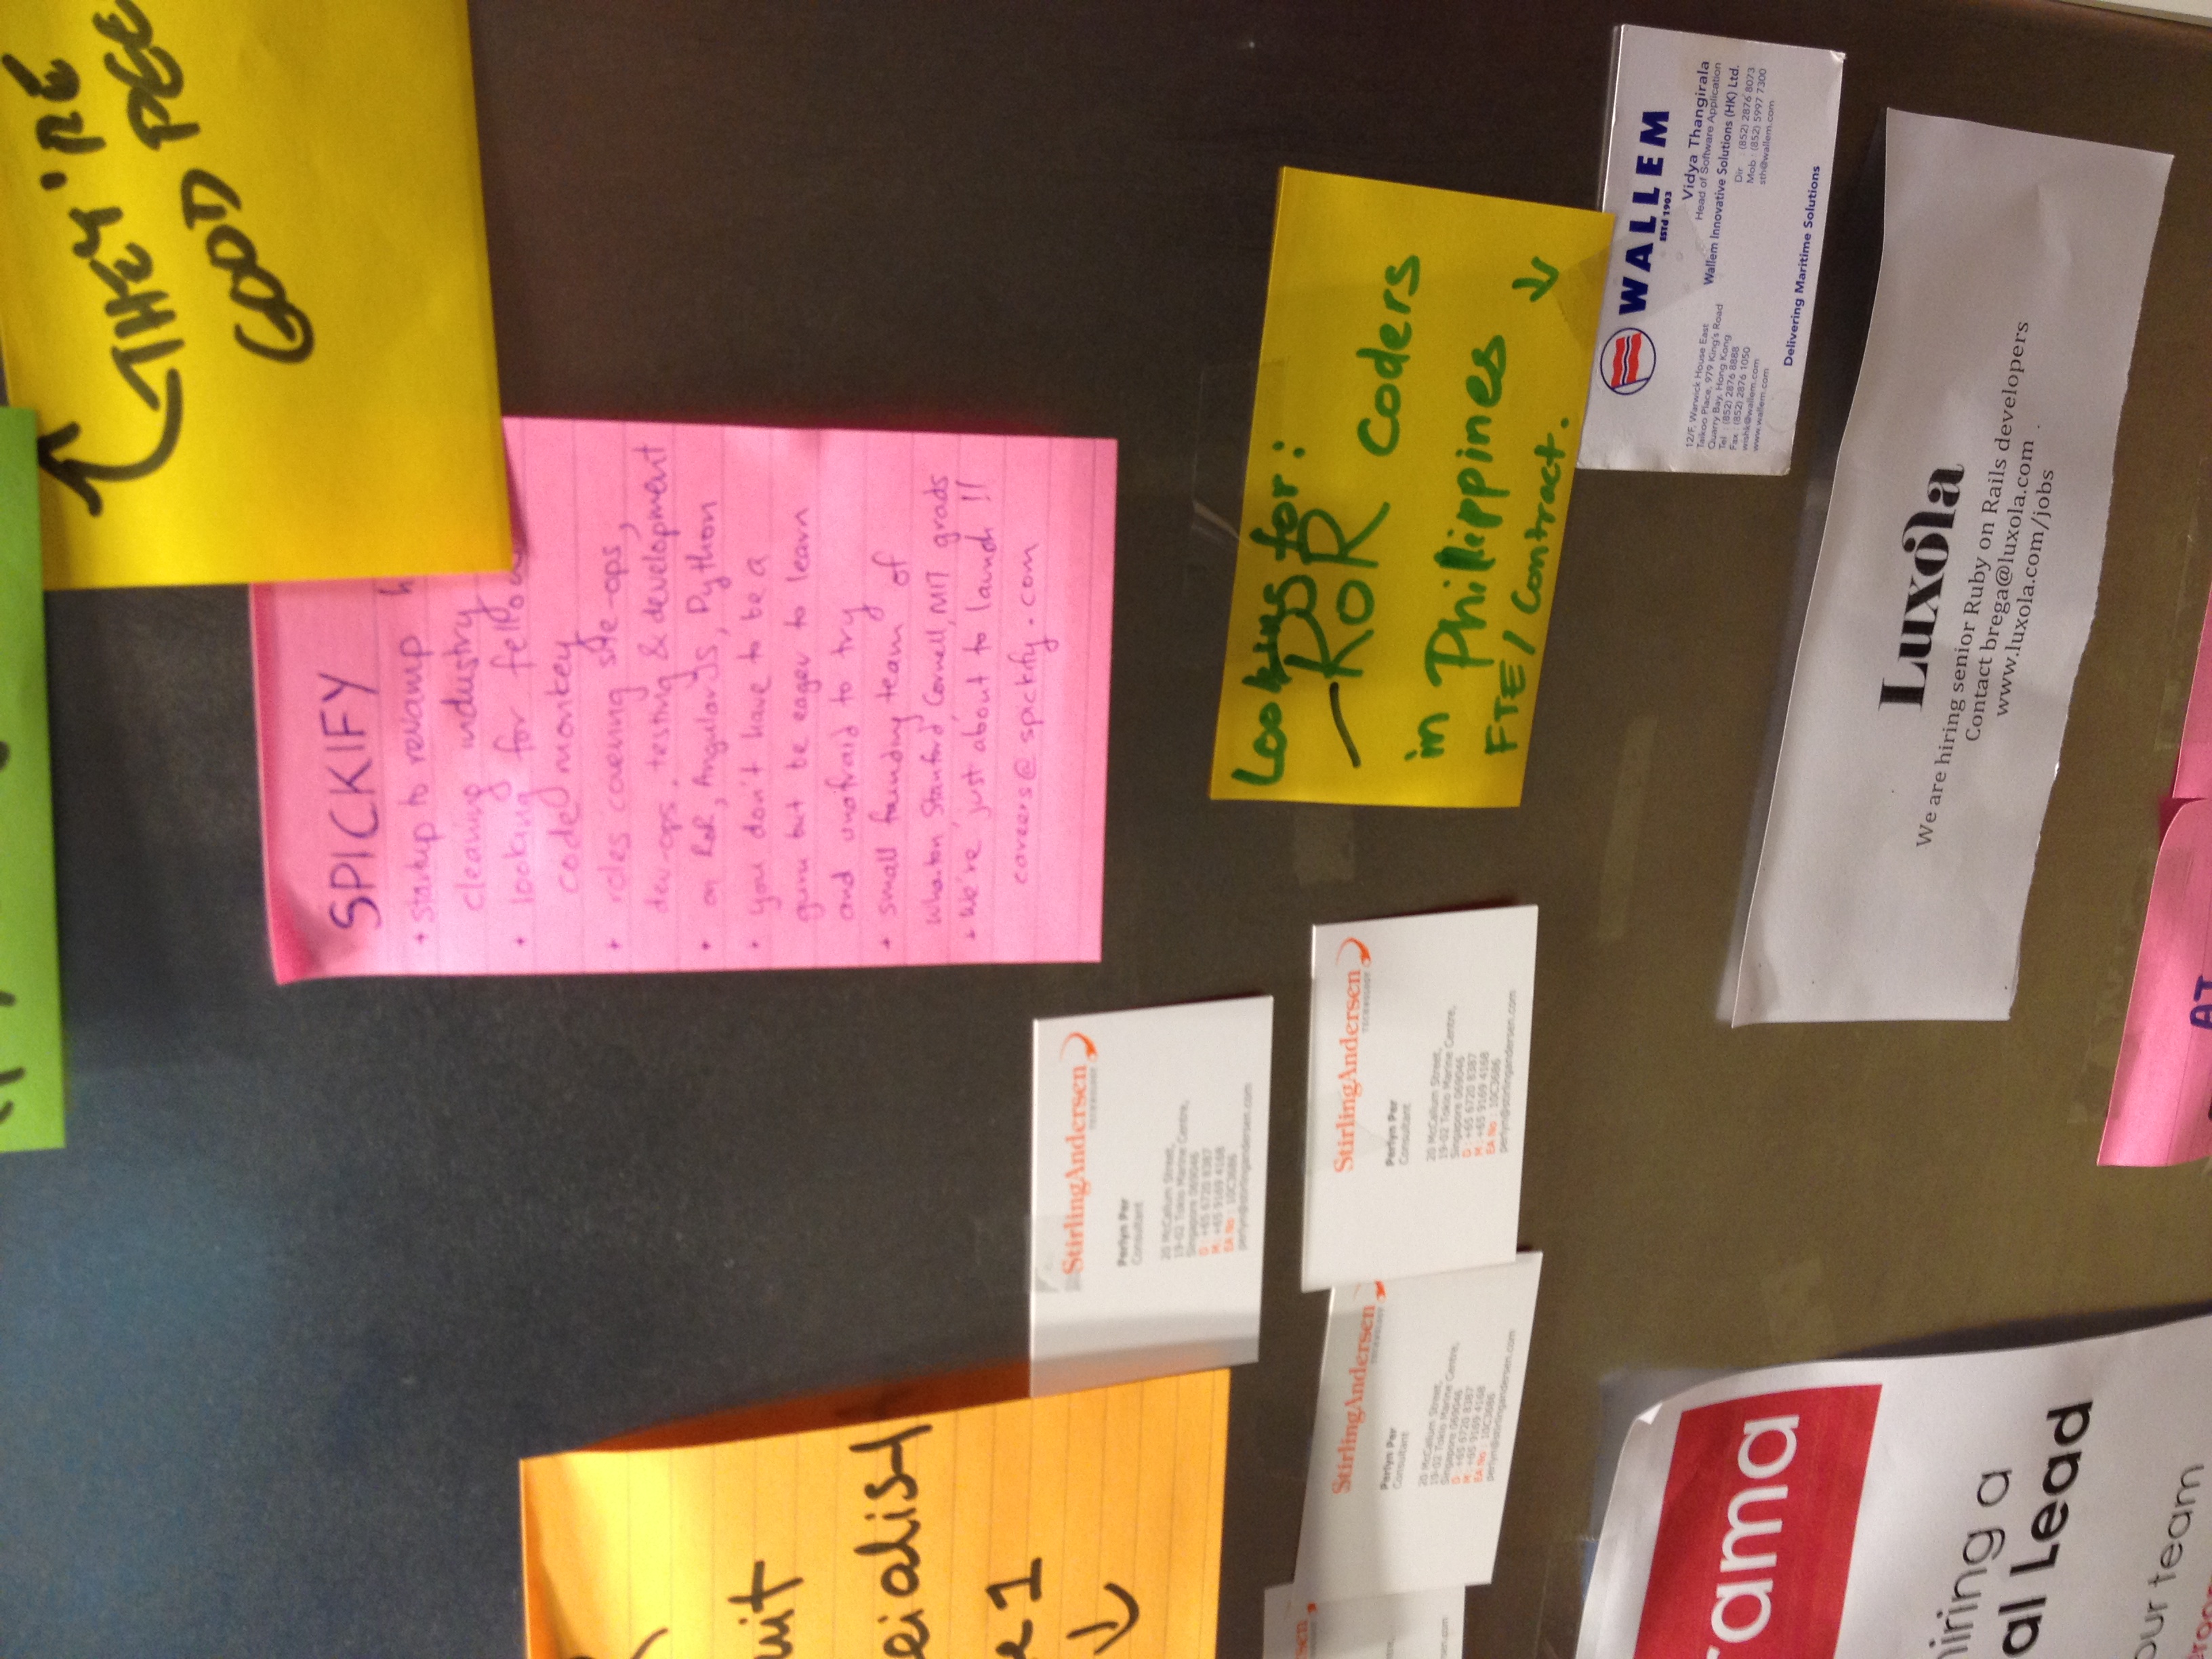 THEY'RE
GOOD PEE
SPICKIFY
+ startup to revamp h
cleaning industry
+ looking for fellow
code monkey
+ roles covering site-ops,
dev-ops, testing & development
• on RoR, AngularJS, Python
• you don't have to be a
guru but be eager to learn
and unafraid to try
+ small founding team of
Wharton, Stanford, Cornell, MIT grads
+ We're just about to launch !!
careers@spickify.com
uit
cialist
e 1
StirlingAndersen
TECHNOLOGY
Perlyn Per
Consultant
20 McCallum Street,
19-02 Tokio Marine Centre,
Singapore 069046
D : +65 6720 8387
M : +65 9169 4168
EA No : 10C3686
perlyn@stirlingandersen.com
StirlingAndersen
TECHNOLOGY
Perlyn Per
Consultant
20 McCallum Street,
19-02 Tokio Marine Centre,
Singapore 069046
D : +65 6720 8387
M : +65 9169 4168
EA No : 10C3686
perlyn@stirlingandersen.com
StirlingAndersen
TECHNOLOGY
Perlyn Per
Consultant
20 McCallum Street,
19-02 Tokio Marine Centre,
Singapore 069046
D : +65 6720 8387
M : +65 9169 4168
EA No : 10C3686
perlyn@stirlingandersen.com
Looking for:
- RoR Coders
in Phillippines
FTE / Contract.
WALLEM
EStd 1903
Vidya Thangirala
Head of Software Application
Wallem Innovative Solutions (HK) Ltd.
12/F, Warwick House East
Taikoo Place, 979 King's Road
Quarry Bay, Hong Kong
Tel : (852) 2876 8888
Fax : (852) 2876 1050
wishk@wallem.com
www.wallem.com
Dir : (852) 2876 8073
Mob : (852) 5997 7300
sth@wallem.com
Delivering Maritime Solutions
rama
hiring a
al Lead
our team
Luxola
We are hiring senior Ruby on Rails developers
Contact brega@luxola.com
www.luxola.com/jobs
AT